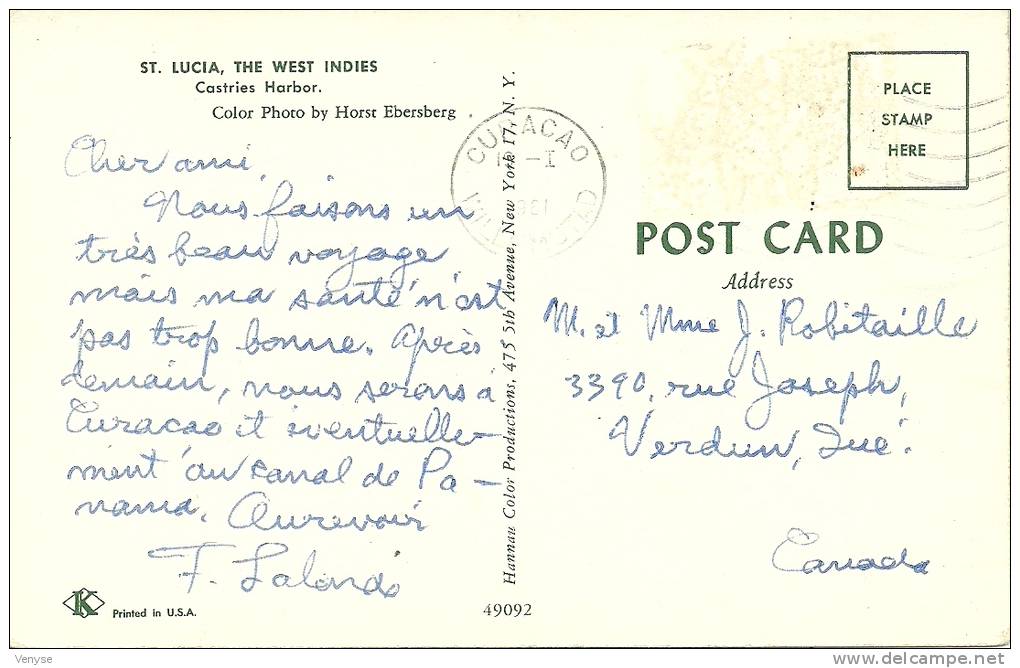 ST. LUCIA, THE WEST INDIES
Castries Harbor.
Color Photo by Horst Ebersberg
Cher ami,
Nous faisons un
très beau voyage
mais ma santé n'est
pas trop bonne. Après
demain, nous serons à
Curacao et éventuelle-
ment au canal de Pa-
nama. Aurevoir
F. Lalonde
K
Printed in U.S.A.
49092
Hannau Color Productions, 475 5th Avenue, New York 17, N. Y.
CURACAO
-I
PLACE
STAMP
HERE
POST CARD
Address
M. et Mme J. Robitaille
3390, rue Joseph,
Verdun, Qué.
Canada
Venyse
delcampe.net